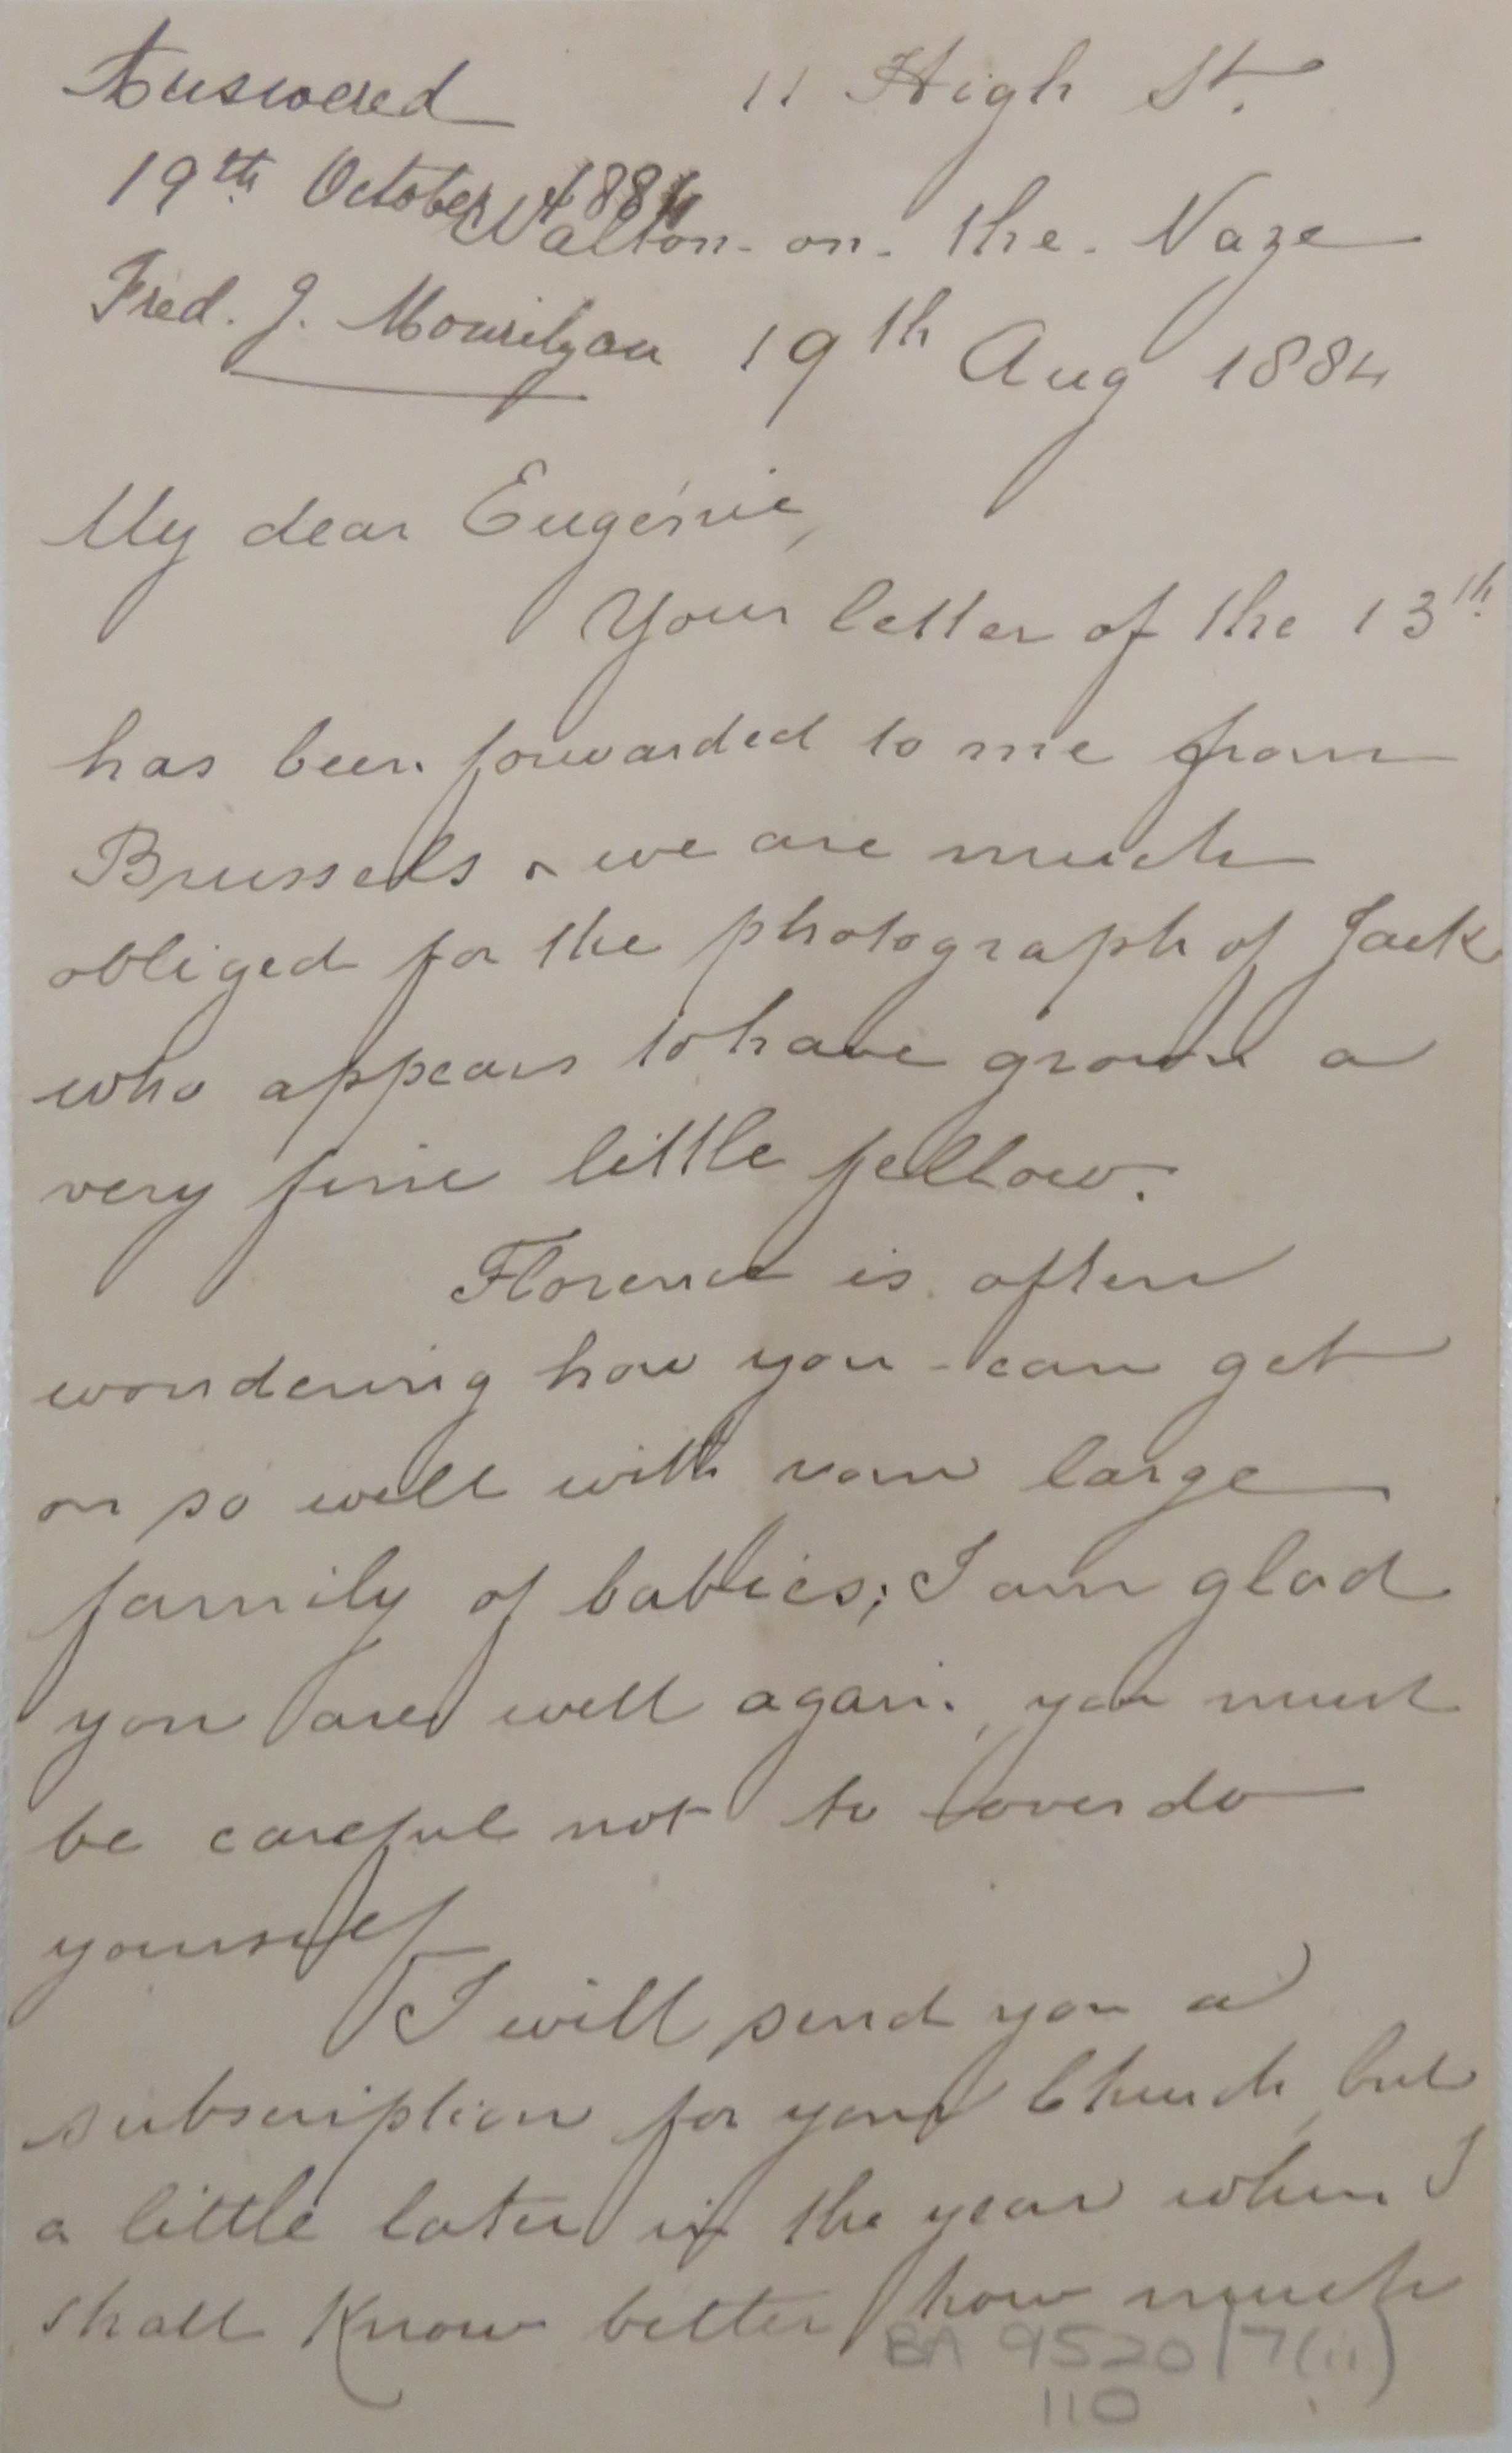 Answered
19th October 1884
Fred. J. Mourilyan
11 High St.
Walton-on-the-Naze
19th Aug 1884
My dear Eugénie,
Your letter of the 13th
has been forwarded to me from
Brussels & we are much
obliged for the photograph of Jack
who appears to have grown a
very fine little fellow.
Florence is often
wondering how you can get
on so well with your large
family of babies; I am glad
you are well again, you must
be careful not to overdo
yourself
I will send you a
subscription for your Church, but
a little later in the year when I
shall know better how much
BA 9520/7(ii)
110